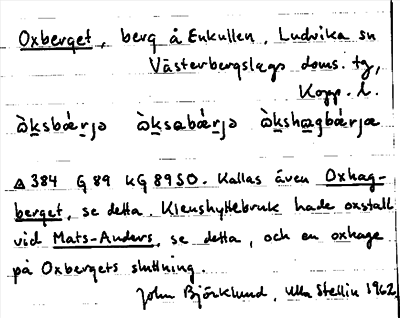 Oxberget, berg å Enkullen, Ludvika sn
Västerbergslags doms. tg,
Kopp. l.
ò̀ksbǽrjə ò̀ksəbǽrjə ò̀kshagbǽrjæ
△ 384 G 89 kG 89 SO. Kallas även Oxhag-
berget, se detta. Klenshyttebruk hade oxstall
vid Mats-Anders, se detta, och en oxhage
på Oxbergets sluttning.
John Björklund, Ulla Stellin 1962.